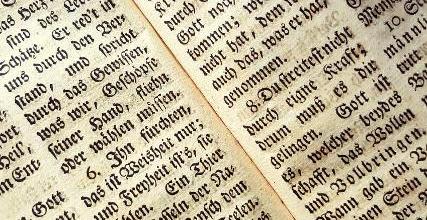 sind des
Schätze. Er redt in
uns durch den Ver-
stand, und spricht
durch das Gewissen,
was wir, Geschöpfe
seiner Hand, fliehn
oder wählen müssen.
6. Ihn fürchten,
das ist Weisheit nur;
und Freyheit ists, sie
Ein Thier
der Na-
dem
Gott
durch,
Gott noch
kommen:
nicht hat, dem
auch das, was er hat,
genommen.
8. Du streitest nicht
durch eigne Kraft;
drum muß es dir
gelingen. Gott ist
es, welcher beydes
schafft, das Wollen
und Vollbringen.
Wann gab ein Va
Stein
10. S